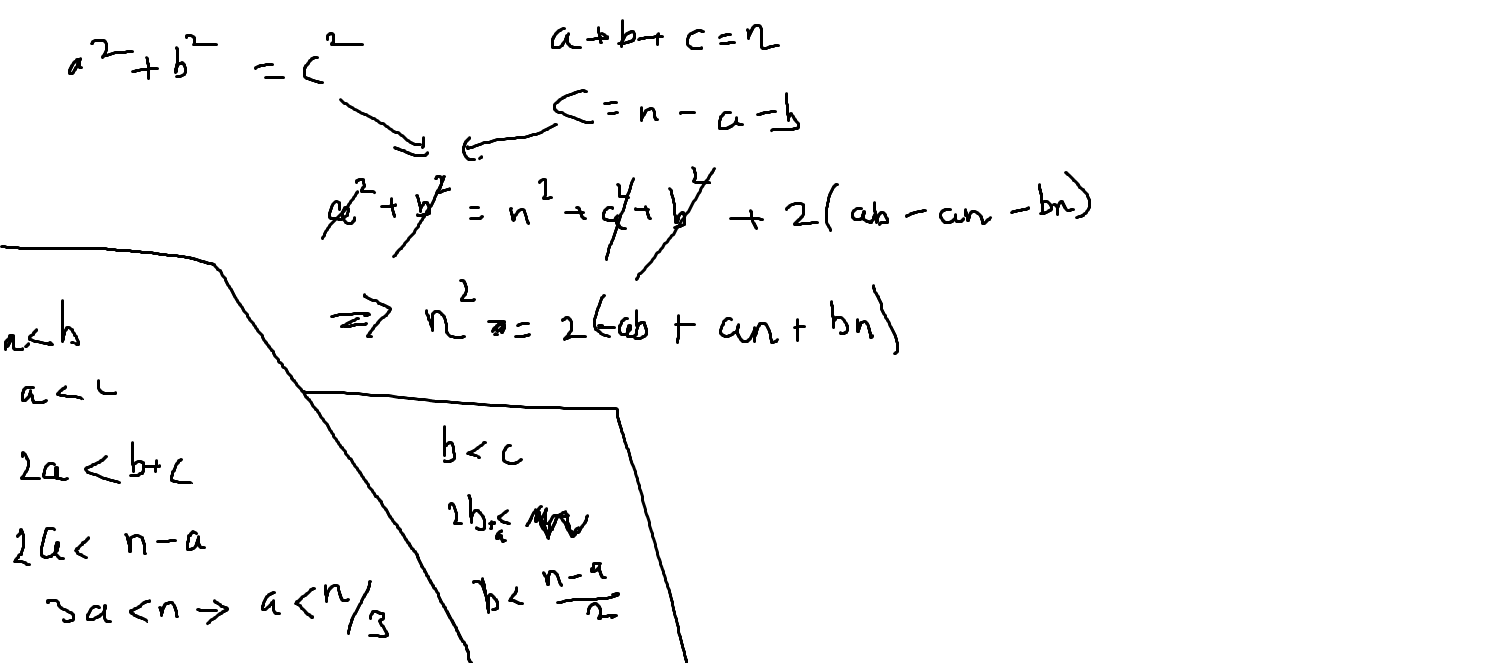 a² + b² = c²
a + b + c = n
c = n - a - b
a² + b² = n² + a² + b² + 2(ab - an - bn)
=> n² = 2(-ab + an + bn)
a < b
a < c
2a < b + c
2a < n - a
3a < n → a < n/3
b < c
2b + a < n
b < (n - a)/2